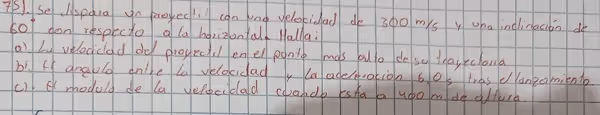 75). Se dispara un proyectil con una velocidad de 300 m/s y una inclinación de
60° con respecto a la horizontal. Halla:
a). La velocidad del proyectil en el punto mas alto de su trayectoria
b). El angulo entre la velocidad y la aceleración 6,0 s tras el lanzamiento.
c). El modulo de la velocidad cuando esta a 400 m de altura.